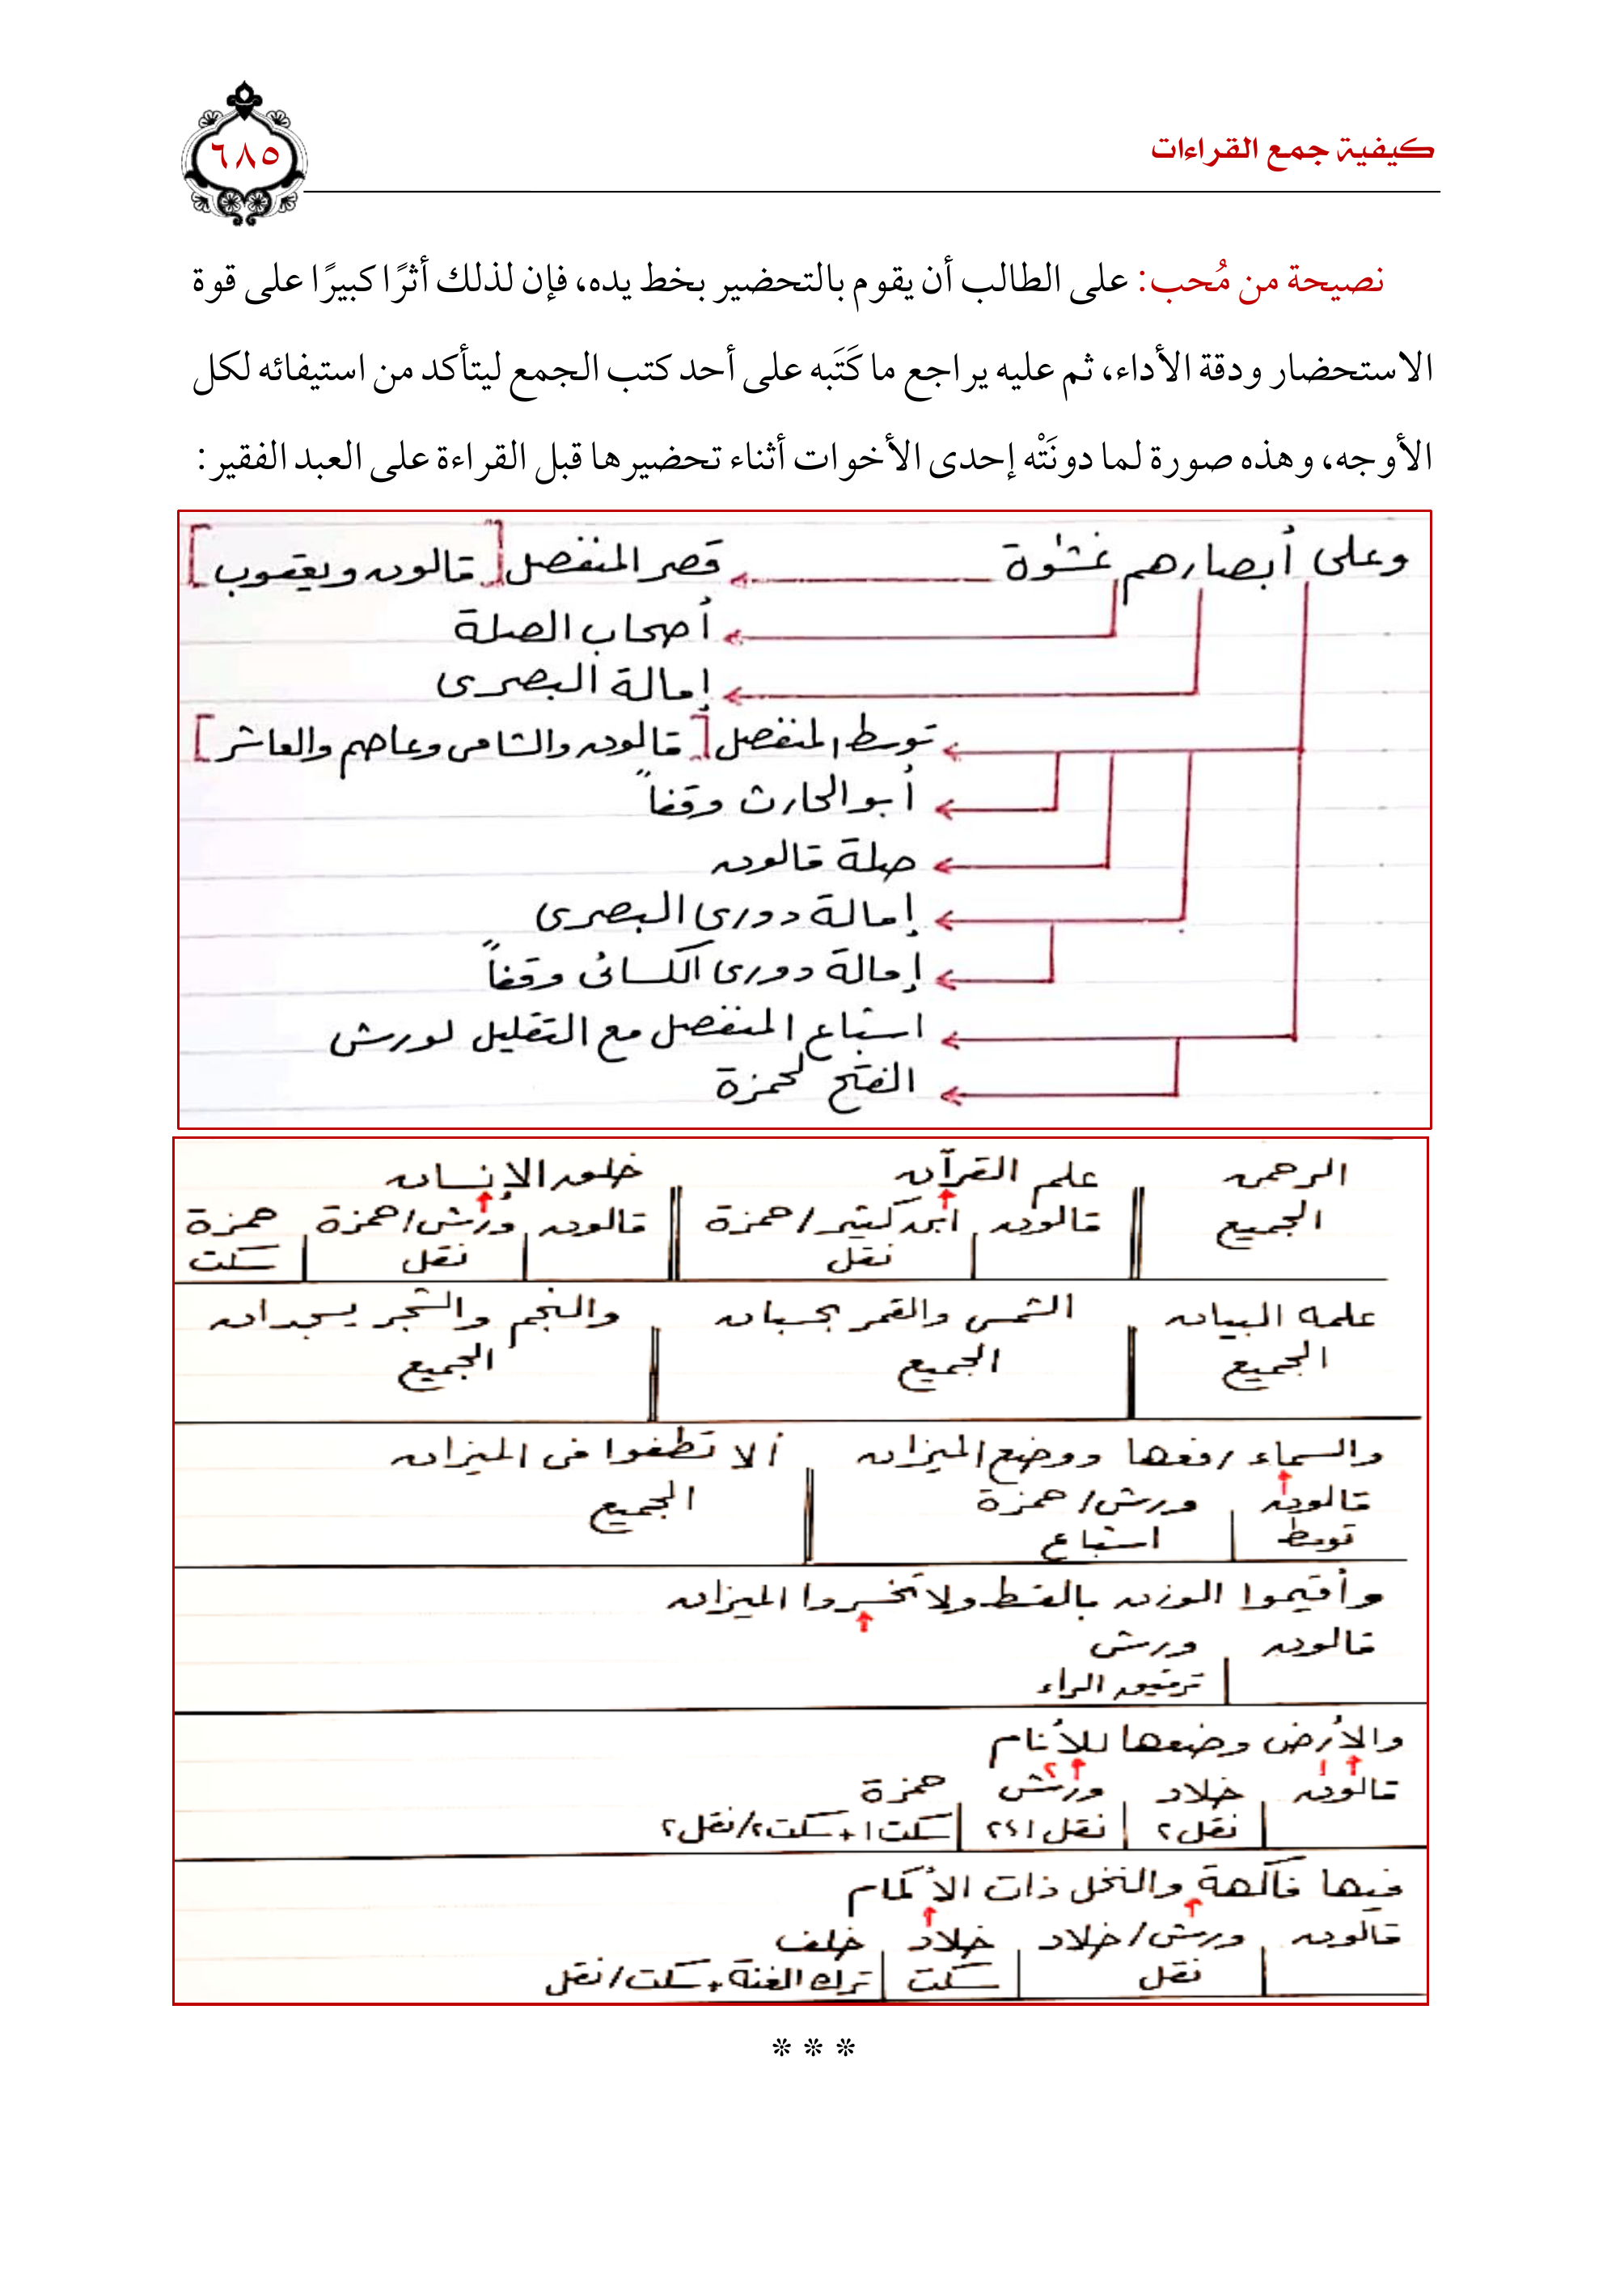 كيفية جمع القراءات
٦٨٥
نصيحة من مُحب: على الطالب أن يقوم بالتحضير بخط يده، فإن لذلك أثرًا كبيرًا على قوة
الاستحضار ودقة الأداء، ثم عليه يراجع ما كَتَبه على أحد كتب الجمع ليتأكد من استيفائه لكل
الأوجه، وهذه صورة لما دونَتْه إحدى الأخوات أثناء تحضيرها قبل القراءة على العبد الفقير:
وعلى أبصارهم غشٰوة قصر المنفصل [قالون ويعقوب]
أصحاب الصلة
إمالة البصرى
توسط المنفصل [قالون والشامى وعاصم والعاشر]
أبو الحارث وقفاً
صلة قالون
إمالة دورى البصرى
إمالة دورى الكسائى وقفاً
اشباع المنفصل مع التقليل لورش
الفتح لحمزة
الرحمن علم القرآن خلق الإنسان
الجميع قالون ابن كثير/حمزة قالون ورش/حمزة حمزة
نقل نقل سكت
علمه البيان الشمس والقمر بحسبان والنجم والشجر يسجدان
الجميع الجميع الجميع
والسماء رفعها ووضع الميزان ألا تطغوا فى الميزان
قالون ورش/حمزة الجميع
توسط اشباع
وأقيموا الوزن بالقسط ولا تخسروا الميزان
قالون ورش
ترقيق الراء
والأرض وضعها للأنام
١ ٢
قالون خلاد ورش حمزة
نقل ٢ نقل ١،٢ سكت ١ + سكت ٢/نقل ٢
فيها فاكهة والنخل ذات الأكمام
قالون ورش/خلاد خلاد خلف
نقل سكت ترك الغنة + سكت/نقل
* * *